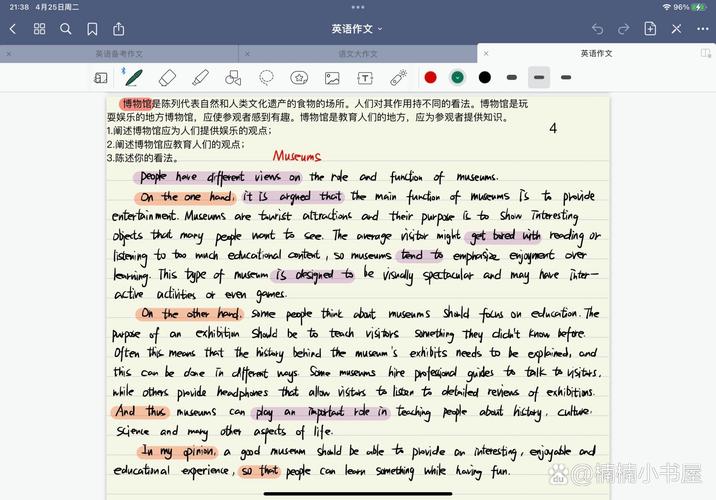 21:38 4月25日周二
96%
英语作文
英语备考作文
语文大作文
英语作文
博物馆是陈列代表自然和人类文化遗产的食物的场所。人们对其作用持不同的看法。博物馆是玩
耍娱乐的地方博物馆，应使参观者感到有趣。博物馆是教育人们的地方，应为参观者提供知识。
1.阐述博物馆应为人们提供娱乐的观点；
4
2.阐述博物馆应教育人们的观点；
3.陈述你的看法。
Museums
people have different views on the role and function of museums.
On the one hand, it is argued that the main function of museums is to provide
entertainment. Museums are turist attractions and their purpose is to show interesting
objects that many people want to see. The average visitor might get bored with reading or
listening to too much educational content, so museums tend to emphasize enjoyment over
learning. This type of museum is designed to be visually spectacular and may have inter-
active activities or even games.
On the other hand, some people think about museums should focus on education. The
purpose of an exhibition should be to teach visitors something they didn't know before.
Often this means that the history behind the museum's exhibits needs to be explained, and
this can be done in different ways. Some museums hire professional guides to talk to visitors,
while others provide headphones that allow visitors to listen to detailed reviews of exhibitions.
And thus museums can play an important role in teaching people about history, culture,
science and many other aspects of life.
In my opinion, a good museum should be able to provide an interesting, enjoyable and
educational experience, so that people can learn something while having fun.
Bai du 百科 @楠楠小书屋